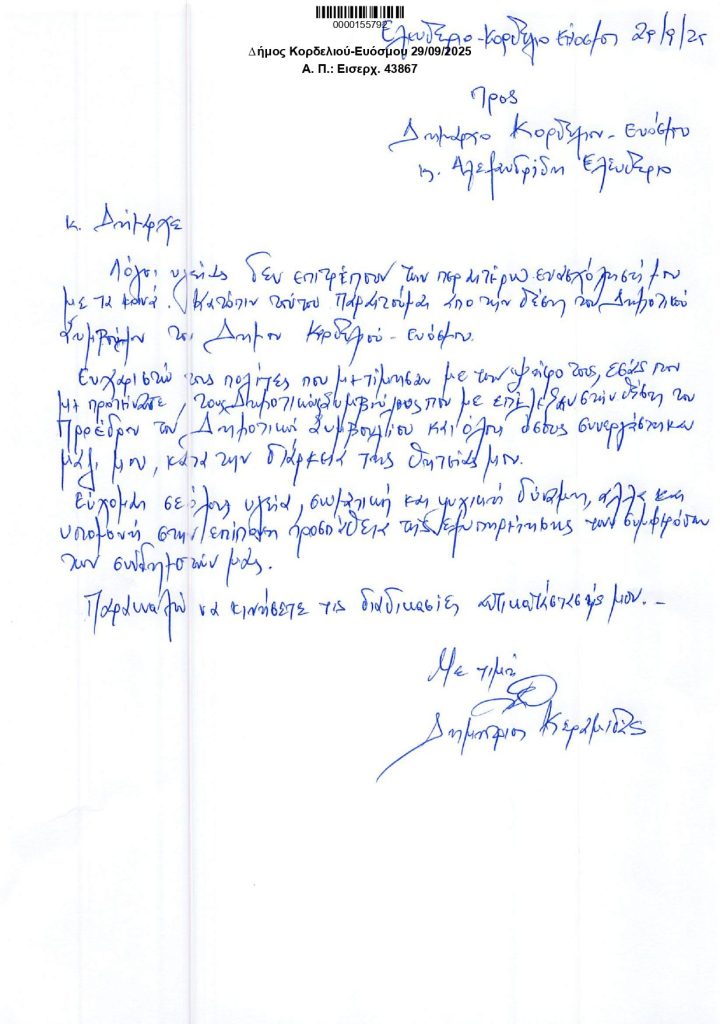 0000155792
Δήμος Κορδελιού-Ευόσμου 29/09/2025
Α. Π.: Εισερχ. 43867
Ελευθέριο-Κορδελιό Εύοσμος 29/9/25
Προς
Δήμαρχο Κορδελιου-Ευόσμου
κ. Αλεξανδρίδη Ελευθέριο
κ. Δήμαρχε
Λόγοι υγείας δεν επιτρέπουν την περαιτέρω ενασχόλησή μου
με τα κοινά. Κατόπιν τούτου παραιτούμαι από την θέση του Δημοτικού
Συμβούλου του Δήμου Κορδελιού-Ευόσμου.
Ευχαριστώ τους πολίτες που με τίμησαν με την ψήφο τους, εσάς που
με προτείνατε, τους Δημοτικούς Συμβούλους που με επέλεξαν στην θέση του
Προέδρου του Δημοτικού Συμβουλίου και όλους όσους συνεργάστηκαν
μαζί μου, κατά την διάρκεια της θητείας μου.
Εύχομαι σε όλους υγεία, σωματική και ψυχική δύναμη, αλλά και
υπομονή στην επίπονη προσπάθεια της εξυπηρέτησης των συμφερόντων
των συνδημοτών μας.
Παρακαλώ να κινήσετε τις διαδικασίες αντικατάστασής μου.-
Με τιμή
Δημήτριος Κεραμιδάς